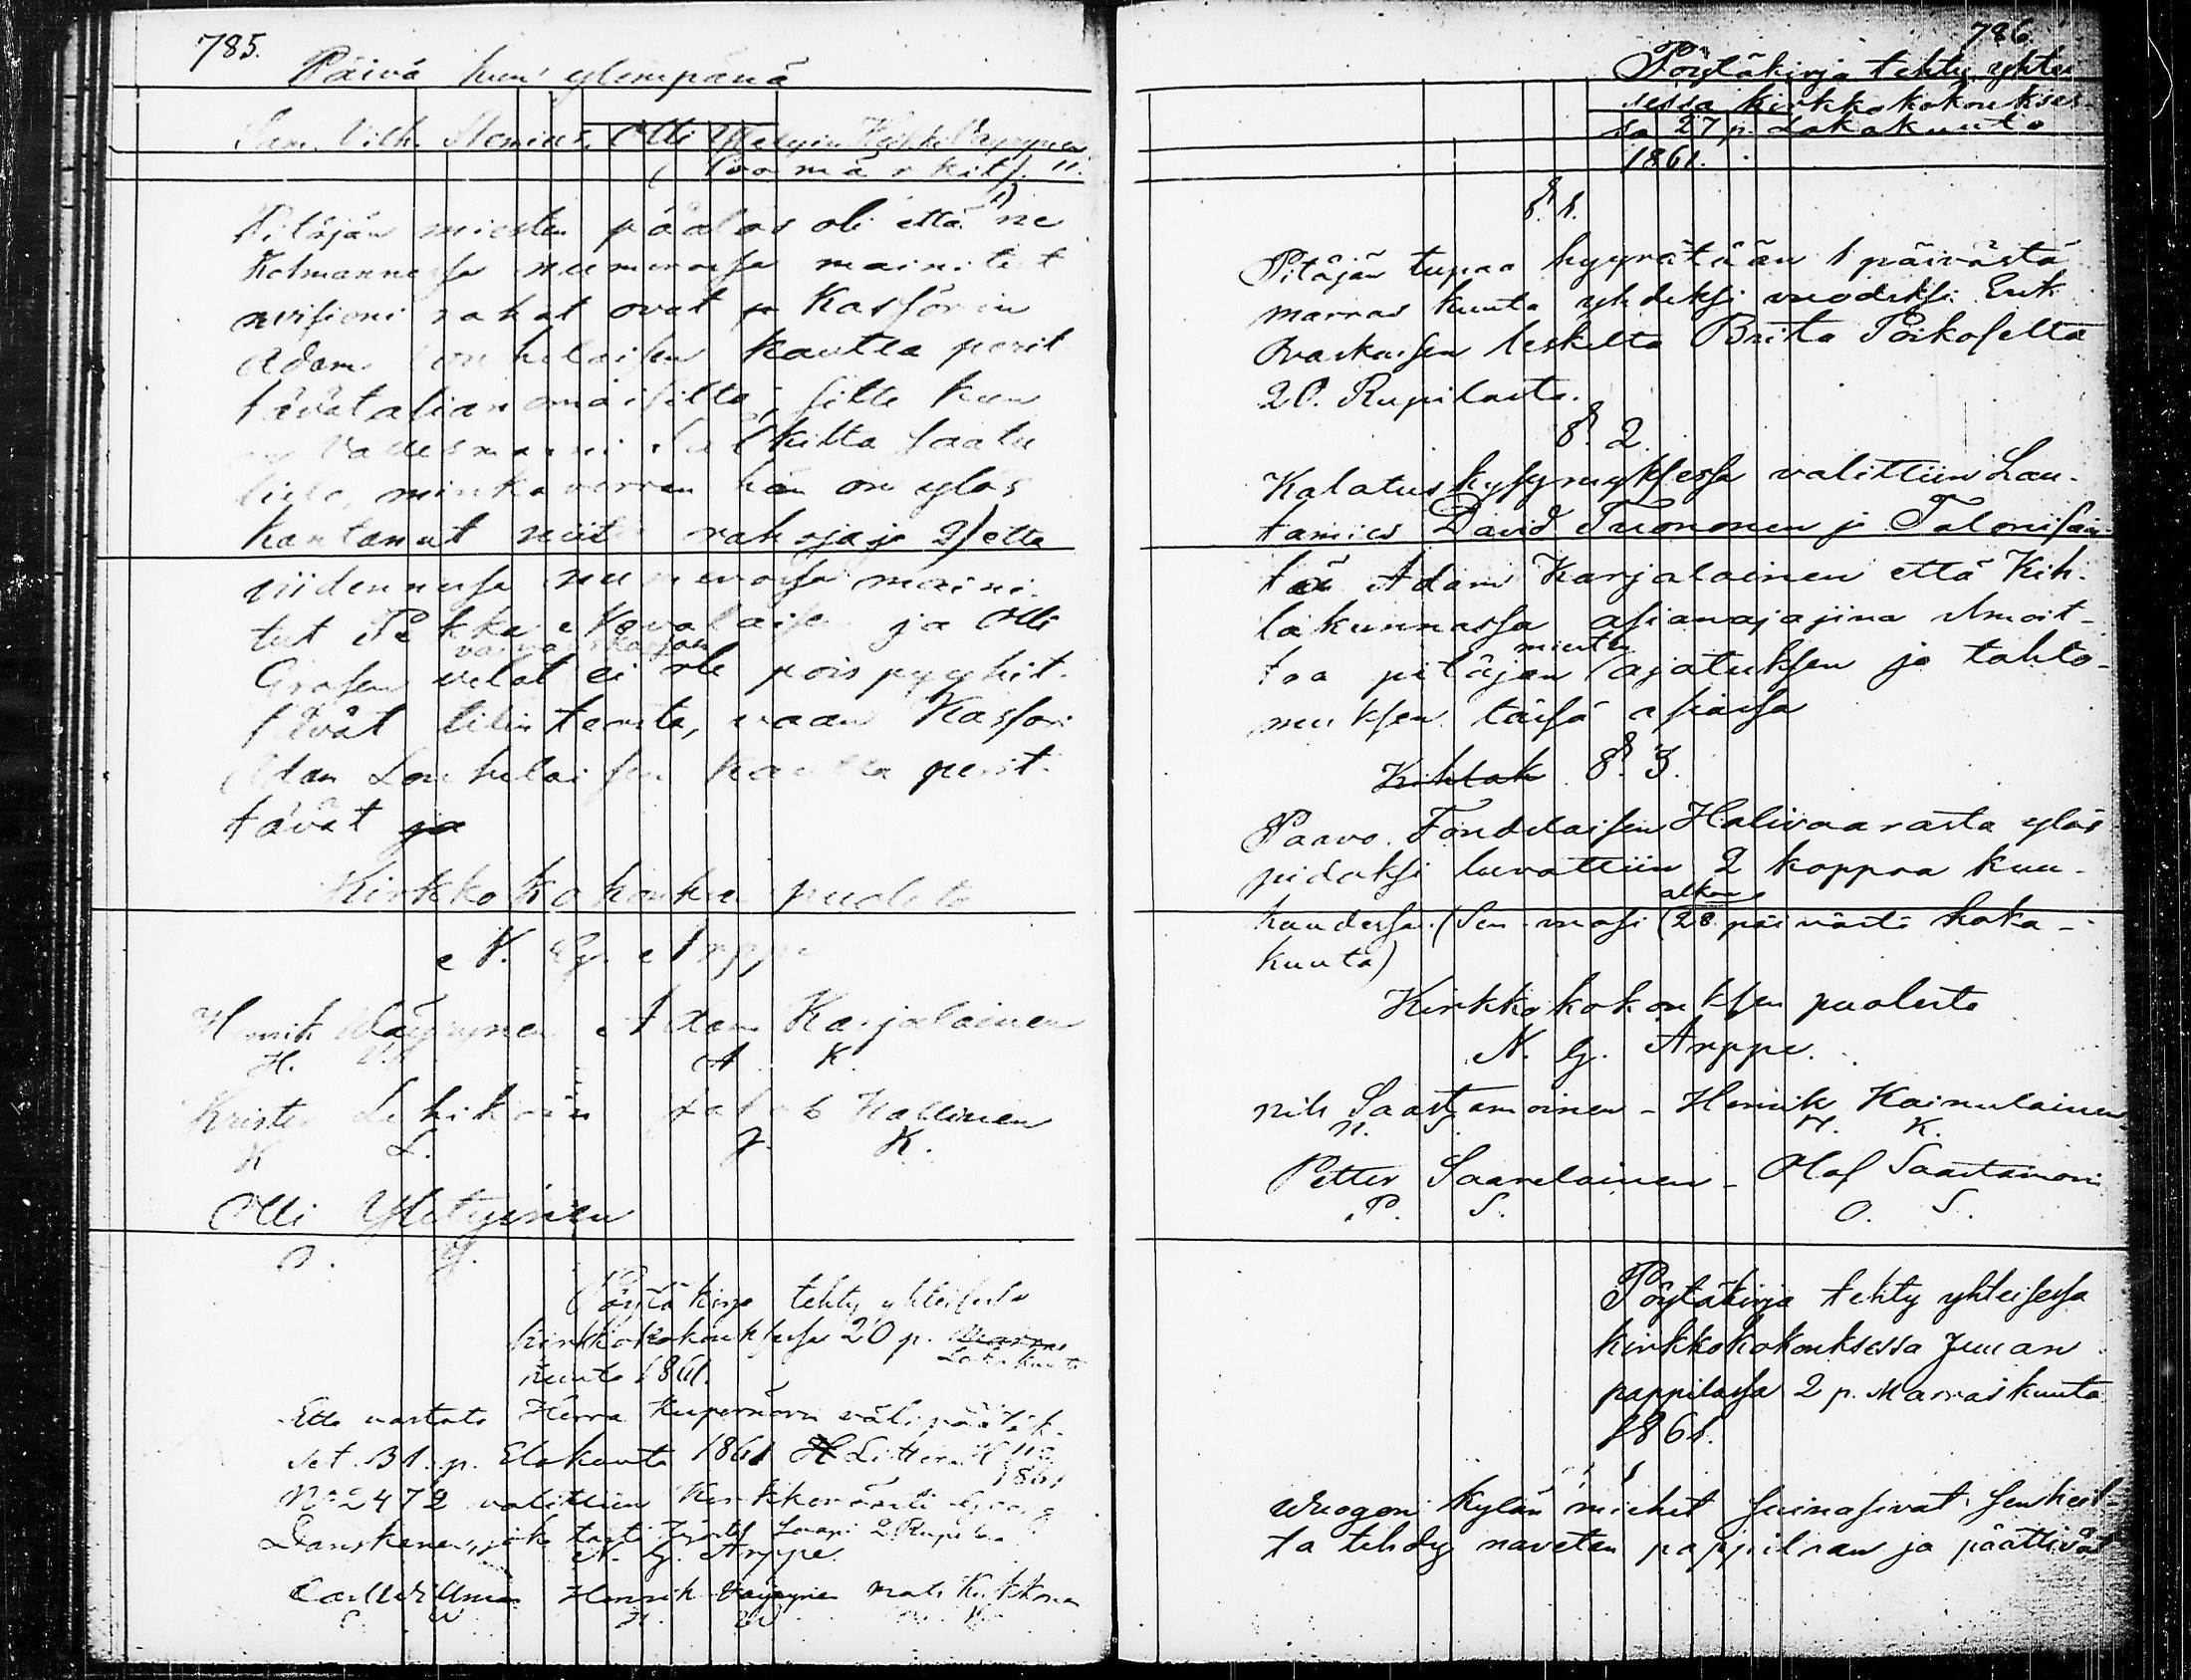 785.
Päivä kuin ylempänä
Sam. Vilh. Stenius, Olli Heikki Väyrynen
(Puumärkit). 11.
Pitäjän miesten päätös oli että 1) ne
Kolmannessa numerossa mainitut
rahat ovat Kassörin
Adam Louhelaisen kautta perit-
tävät asian omaisilta, sitte kun
saatu
minkä verran hän on ylös
kantanut niitä rahoja ja 2) että
viidennessä numerossa maini-
tut Pekka Kovalaisen ja Olli
vaivaiskassan
Grasen velat ei ole pois pyyhit-
tävät tilin teosta, vaan Kassöri
Adam Louhelaisen kautta perit-
tävät ja
Kirkkokokouksen puolesta
N. G. Arppe
Henrik Wäyrynen Adam Karjalainen
H. W. A. K.
Krister Lehikoin Jakob Kallinen
K L. J. K.
Olli Yletyinen
O. Y.
Pöytäkirja tehty yhteisessä
kirkkokokouksessa 20 p. Marras
Lokakuuta
kuuta 1861.
Että vastata Herra Kupernörin välipäätök-
set 31. p. Elokuuta 1861 Litter. H
1861
No 2472 valittiin Kirkkoväärti
Danskanen, joka 2 Rupilaa
N. G. Arppe.
Carl Willman Henrik Väyrynen Mats Kukkonen
C. W H. W M. K.
786.
Pöytäkirja tehty yhtei
sessa kirkkokokoukses-
sa 27 p. Lokakuuta
1861.
§. 1.
Pitäjän tupaa hyyrätään 1 päivästä
marras kuuta yhdeksi vuodeksi Erik
Ovaskaisen leskeltä Brita Poikoselta
20. Rupilasta.
§. 2.
Kalatus kysymyksessä valittiin Lau-
tamies David Tuononen ja Talonisän-
tä Adam Karjalainen että Kih-
lakunnassa asianajajina ilmoit-
miesten
taa pitäjän ajatuksen ja tahto-
muksen täisä asiaisa
Kihlak §. 3.
Paavo Tondelaisen Halivaarasta ylös
pidoksi luvattiin 2 koppaa kuu-
alkaen
kaudessa. (Sen vuosi (28 päivästä loka-
kuuta)
Kirkkokokouksen puolesta
N. G. Arppe.
Nils Saastamoinen – Henrik Kainulainen
N. S. H. K.
Petter Saarelainen – Olof Saastamoin
P. S. O. S.
Pöytäkirja tehty yhteisessa
kirkkokokouksessa Juuan
pappilassa 2 p. Marraskuuta
1861.
Wuogon kylän miehet suinasivat senkeel-
ta tehdy navetan pappilaan ja päättivät